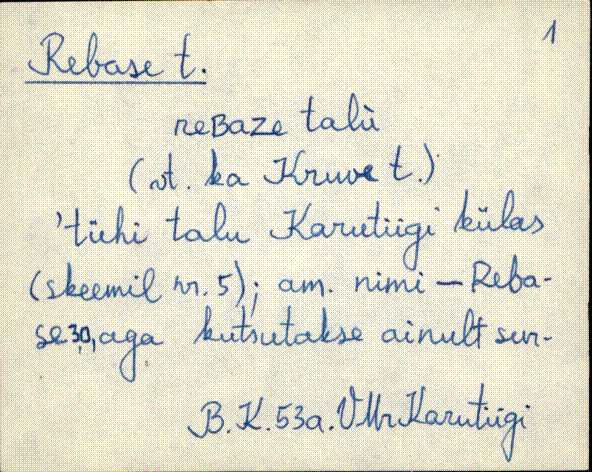 1
Rebase t.
reBaze talù
(vt. ka Kruve t.)
'tühi talu Karutiigi külas
(skeemil nr. 5); am. nimi — Reba-
se 30, aga kutsutakse ainult sur-
B.K. 53a. VMr Karutiigi